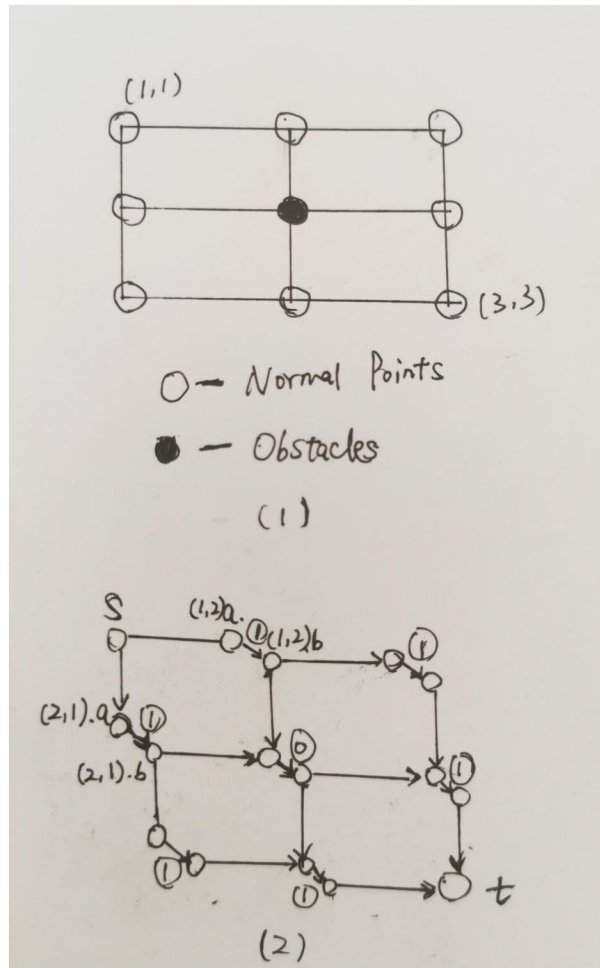 (1,1)
(3,3)
○ — Normal Points
● — Obstacles
(1)
S
(1,2)a. ① (1,2)b
①
(2,1).a ①
(2,1).b
⓪
①
①
①
t
(2)